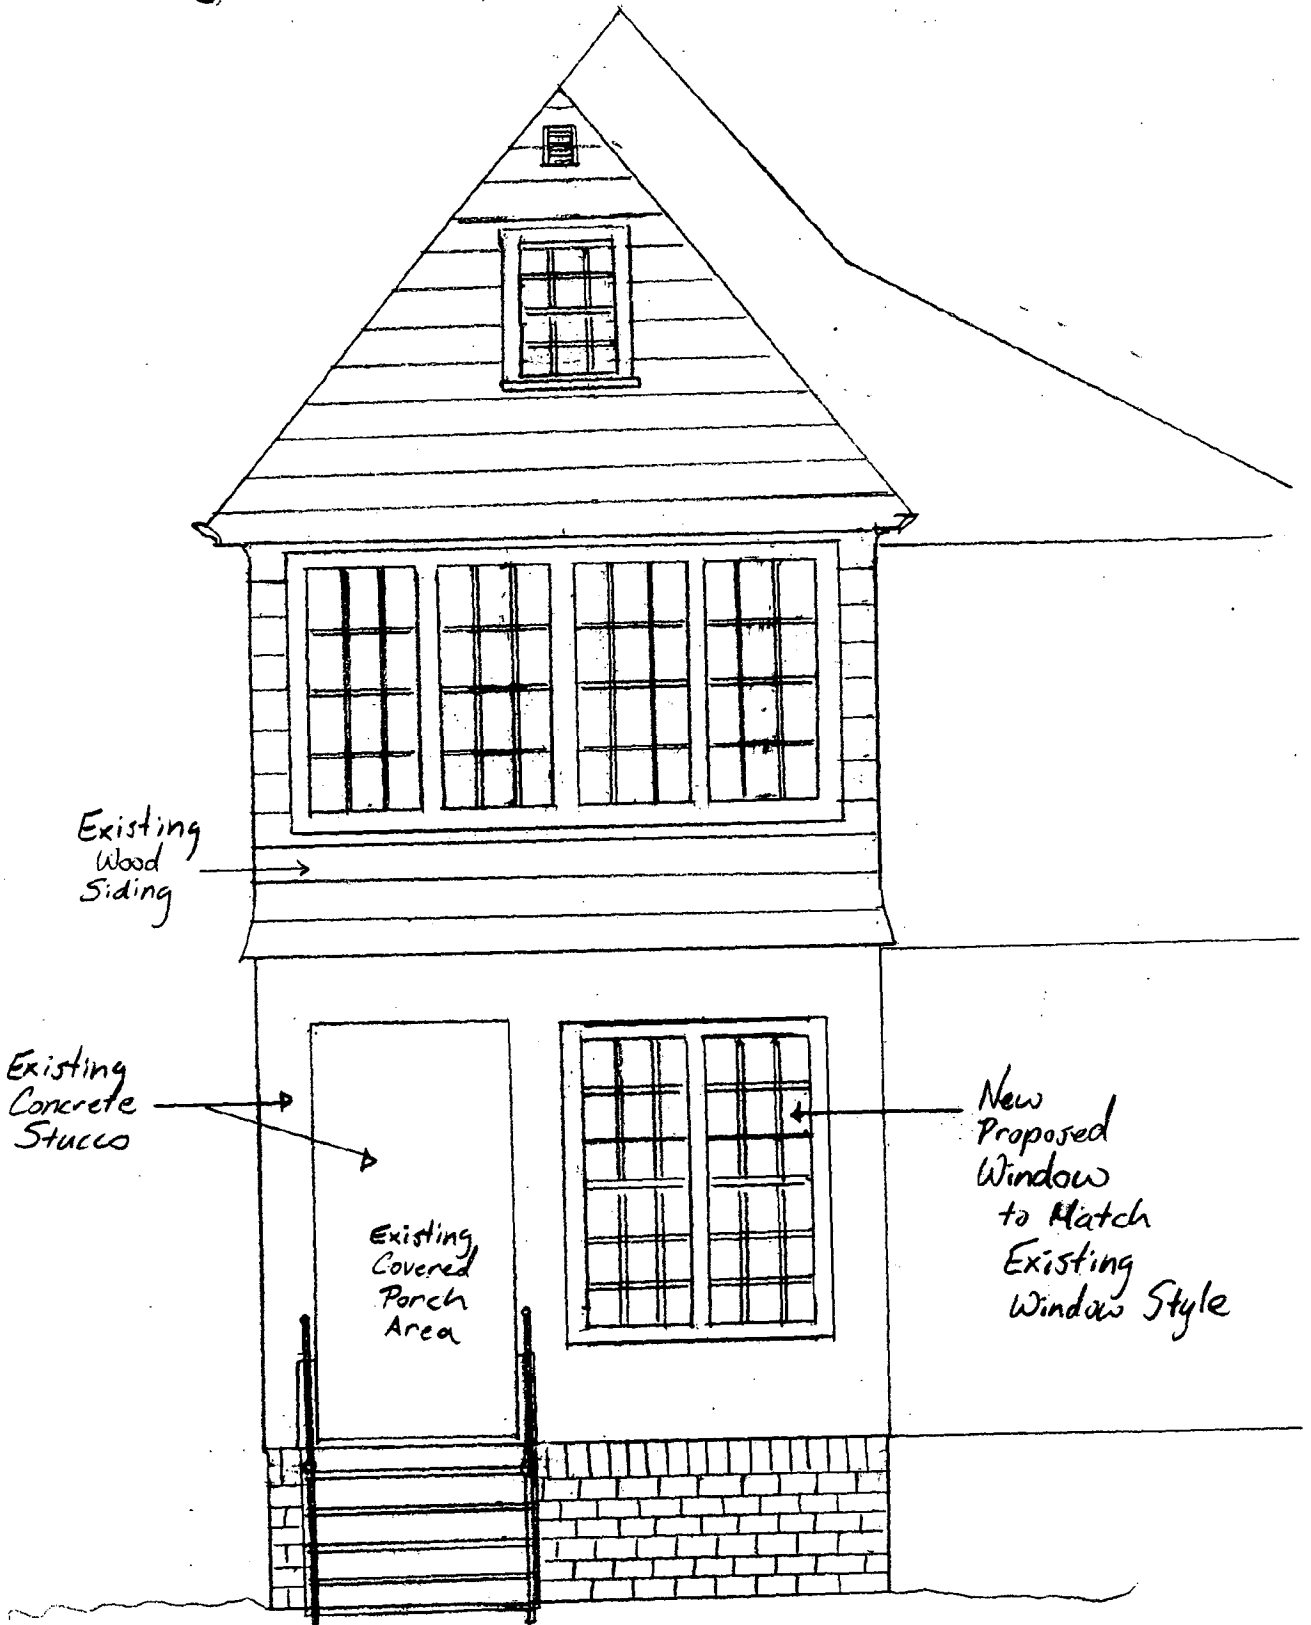 Existing
Wood
Siding
Existing
Concrete
Stucco
Existing
Covered
Porch
Area
New
Proposed
Window
to Match
Existing
Window Style